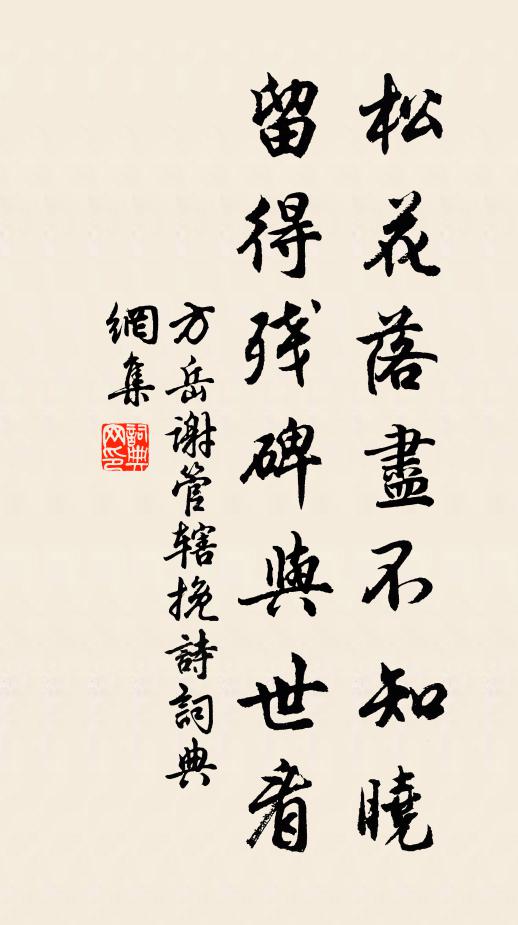 松花落盡不知曉
留得残碑與世看
方岳謝管辖挽詩詞典
網集
詞典網印